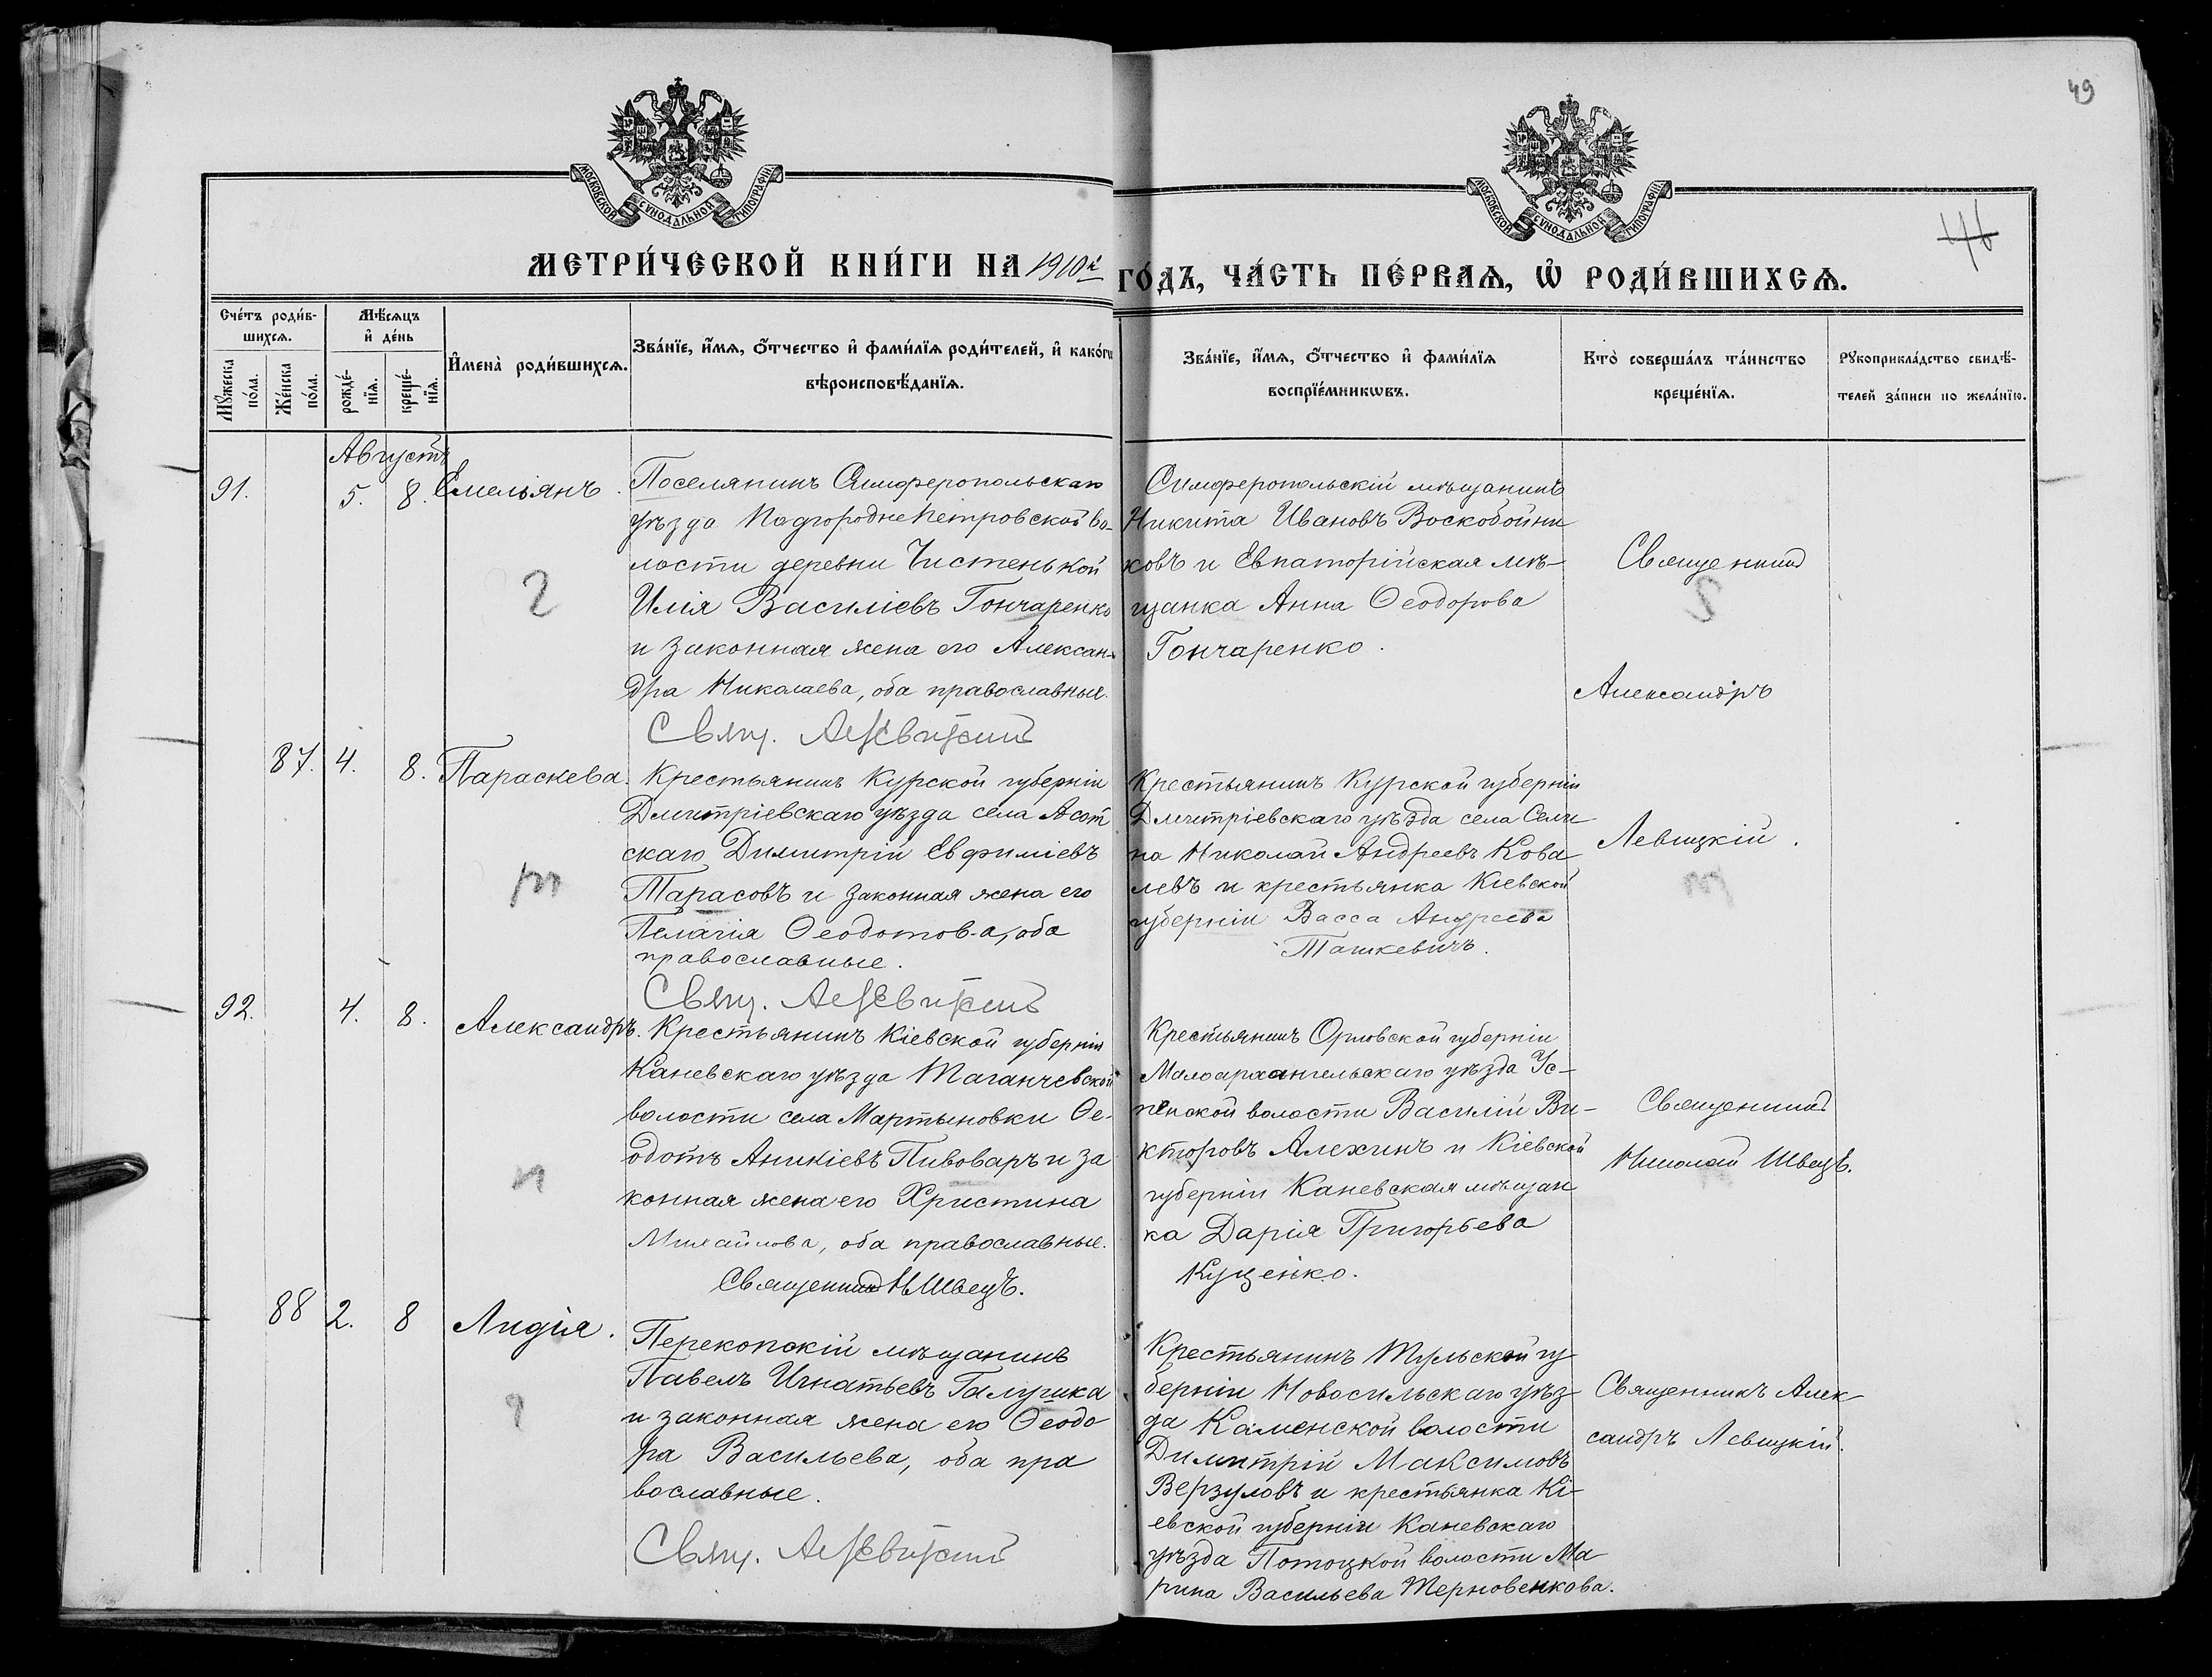 49
46
МОСКОВСКОЙ СѴНОДАЛЬНОЙ ТИПОГРАФІИ
МОСКОВСКОЙ СѴНОДАЛЬНОЙ ТИПОГРАФІИ
МЕТРИ́ЧЕСКОЙ КНИ́ГИ НА 1910й ГО́ДЪ, ЧА́СТЬ ПЕ́РВАѦ, Ѽ РОДИ́ВШИХСѦ.
Сче́тъ роди́в-
шихсѧ.
Мꙋ́жеска
по́ла.
Же́нска
по́ла.
Мѣ́сѧцъ
и҆ де́нь
рожде́-
нїѧ.
креще́-
нїѧ.
И҆мена̀ роди́вшихсѧ.
Зва́нїе, и҆́мѧ, ѻ҆́тчество и҆ фами́лїѧ роди́телей, и҆ како́гѡ
вѣроисповѣ́данїѧ.
Зва́нїе, и҆́мѧ, ѻ҆́тчество и҆ фами́лїѧ
воспрїе́мникѡвъ.
Кто̀ соверша́лъ та́инство
креще́нїѧ.
Рꙋкоприкла́дство свидѣ́-
телей за́писи по жела́нїю.
Августъ
91.
5.
8.
Емельянъ.
Поселянинъ Симферопольскаго
уѣзда Подгородне Петровской во-
лости деревни Чистенькой
Илія Василіевъ Гончаренко
и законная жена его Алексан-
дра Николаева, оба православные.
Свящ. Ал Левицкій
Симферопольскій мѣщанинъ
Никита Ивановъ Воскобойни
ковъ и Евпаторійская мѣ-
щанка Анна Ѳеодорова
Гончаренко.
Священникъ
Александръ
Левицкій.
2
87.
4.
8.
Параскева.
Крестьянинъ Курской губерніи
Дмитріевскаго уѣзда села Асот
скаго Димитрій Евфиміевъ
Тарасовъ и законная жена его
Пелагія Ѳеодотова, оба
православные.
Свящ. Ал Левицкій
Крестьянинъ Курской губерніи
Дмитріевскаго уѣзда села Сели
на Николай Андреевъ Кова
левъ и крестьянка Кіевской
губерніи Васса Андреева
Ташкевичъ.
92.
4.
8.
Александръ.
Крестьянинъ Кіевской губерніи
Каневскаго уѣзда Таганчевской
волости села Мартыновки Ѳе-
одотъ Аникіевъ Пивоваръ и за
конная жена его Христина
Михайлова, оба православные.
Священникъ Н Швецъ.
Крестьянинъ Орловской губерніи
Малоархангельскаго уѣзда Ус-
пенской волости Василій Ви-
кторовъ Алехинъ и Кіевской
губерніи Каневская мѣщан
ка Дарія Григорьева
Куценко.
Священникъ
Николай Швецъ.
88
2.
8
Лидія.
Перекопскій мѣщанинъ
Павелъ Игнатьевъ Галушка
и законная жена его Ѳеодо
ра Васильева, оба пра
вославные.
Свящ. Ал Левицкій
Крестьянинъ Тульской гу
берніи Новосильскаго уѣз
да Каменской волости
Димитрій Максимовъ
Верзуловъ и крестьянка Кі-
евской губерніи Каневскаго
уѣзда Потоцкой волости Ма
рина Васильева Терновенкова.
Священникъ Алек
сандръ Левицкій.